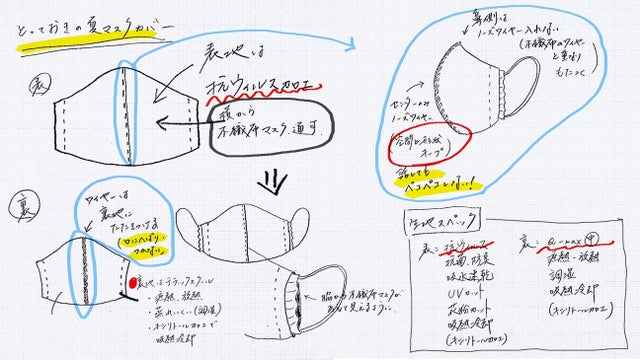 とっておきの夏マスクカバー
表
表地は
抗ウィルス加工
横から
不織布マスク通す
鼻側は
ノーズワイヤー入れない
(不織布のワイヤー
と重なり
もたつく)
センターのみ
ノーズワイヤー
空間を形成
キープ
話しても
ペコペコしない!
裏
ワイヤーは
裏地に
たたきつける
(口にへばり
つかない)
裏地はテラックスクール
・遮熱・放熱
・蒸れにくい(調湿)
・キシリトール加工で
吸熱冷却
脇から不織布マスクが
あえて見えるように
生地スペック
表:抗ウィルス
抗菌防臭
吸水速乾
UVカット
花粉カット
吸熱冷却
(キシリトール加工)
裏:Q-max
遮熱・放熱
調湿
吸熱冷却
(キシリトール加工)